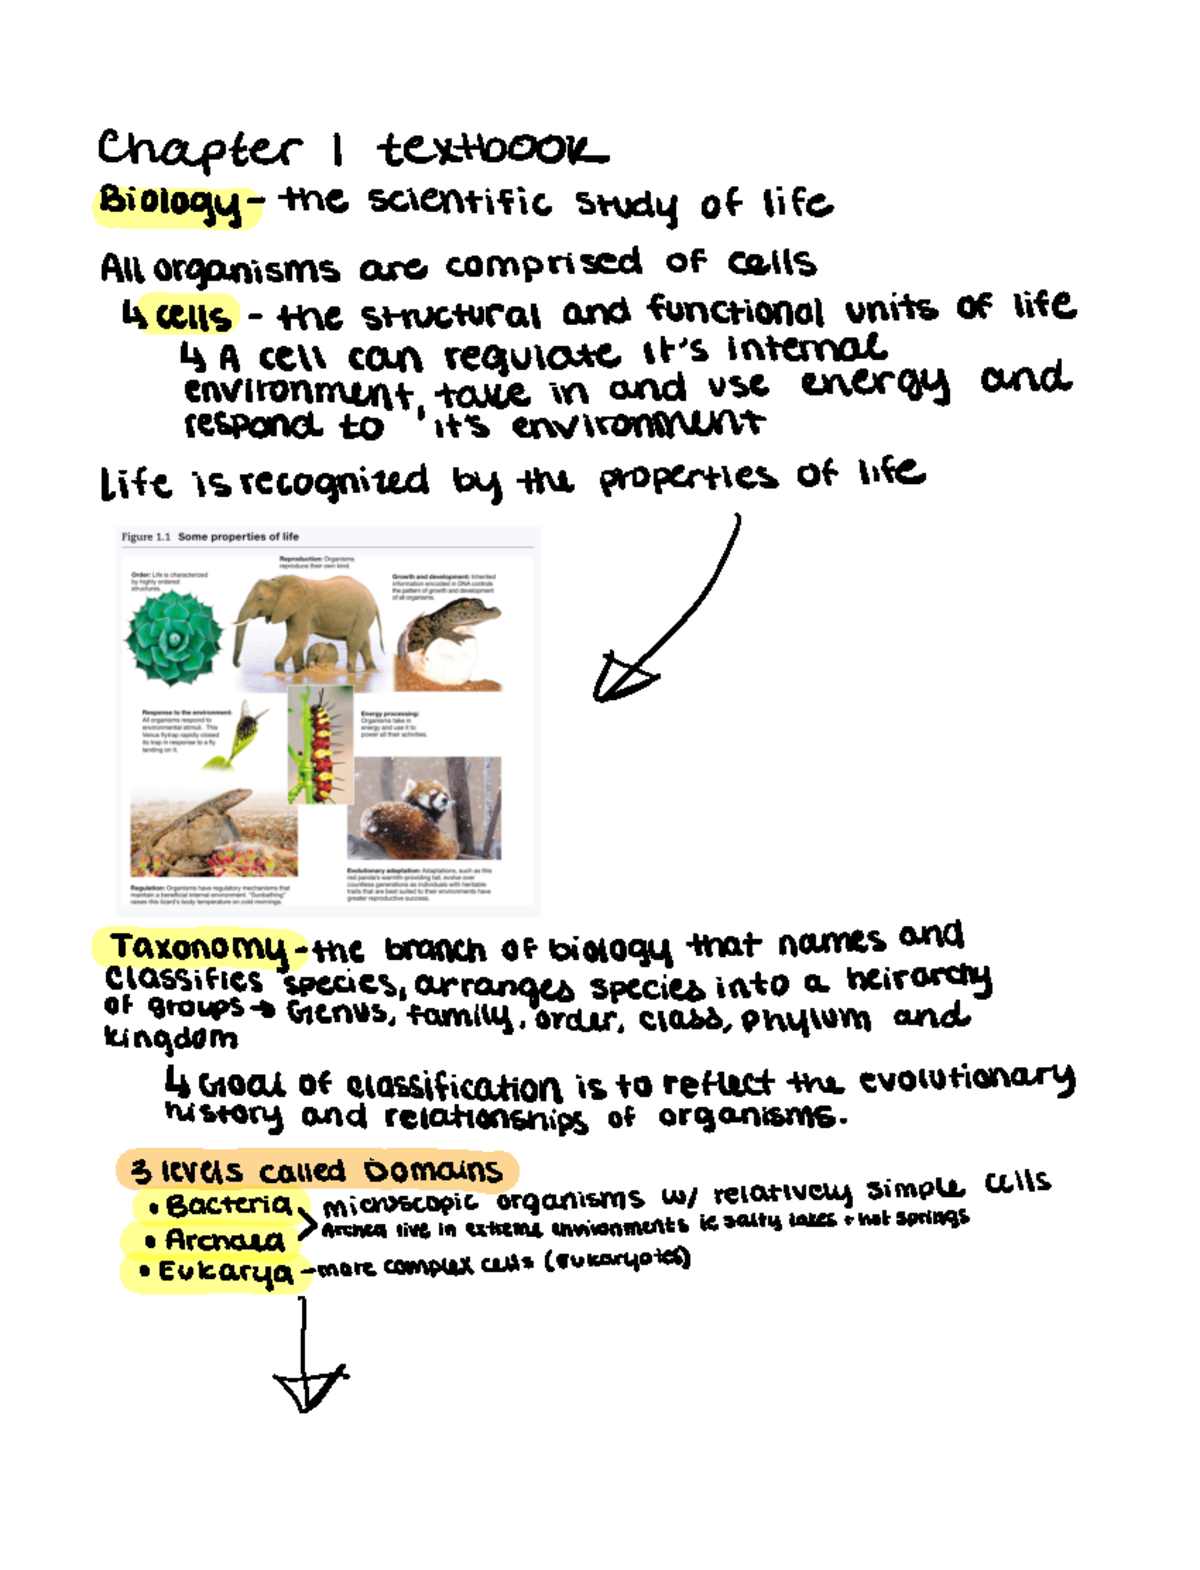 Chapter 1 textbook
Biology - the scientific study of life
All organisms are comprised of cells
↳ cells - the structural and functional units of life
↳ A cell can regulate it's internal
environment, take in and use energy and
respond to it's environment
Life is recognized by the properties of life
Figure 1.1 Some properties of life
Reproduction: Organisms
reproduce their own kind.
Order: Life is characterized
by highly ordered
structures.
Growth and development: Inherited
information encoded in DNA controls
the pattern of growth and development
of all organisms.
Response to the environment:
All organisms respond to
environmental stimuli. This
Venus flytrap rapidly closed
its trap in response to a fly
landing on it.
Energy processing:
Organisms take in
energy and use it to
power all their activities.
Regulation: Organisms have regulatory mechanisms that
maintain a beneficial internal environment. "Sunbathing"
raises this lizard's body temperature on cold mornings.
Evolutionary adaptation: Adaptations, such as this
red panda's warmth-providing tail, evolve over
countless generations as individuals with heritable
traits that are best suited to their environments have
greater reproductive success.
Taxonomy - the branch of biology that names and
classifies species, arranges species into a heirarchy
of groups → Genus, family, order, class, phylum and
kingdom
↳ Goal of classification is to reflect the evolutionary
history and relationships of organisms.
3 levels called Domains
• Bacteria > microscopic organisms w/ relatively simple cells
• Archaea Archea live in extreme environments ie salty lakes + hot springs
• Eukarya - more complex cells (Eukaryotes)